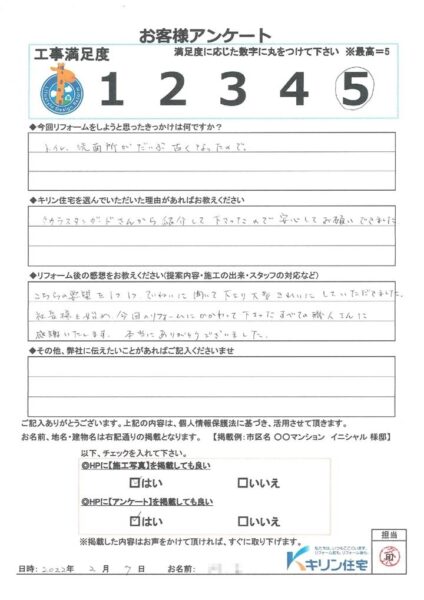 お客様アンケート
工事満足度
満足度に応じた数字に丸をつけて下さい ※最高＝5
1 2 3 4 5
◆今回リフォームをしようと思ったきっかけは何ですか？
トイレ、洗面所がだいぶ古くなったので。
◆キリン住宅を選んでいただいた理由があればお教えください
さんから紹介して下さったので安心してお願いできました
◆リフォーム後の感想をお教えください(提案内容・施工の出来・スタッフの対応など)
こちらの要望を1つ1つていねいに聞いて下さり大変きれいにしていただきました。
社長様を始め今回のリフォームにかかわって下さったすべての職人さんに
感謝いたします。本当にありがとうございました。
◆その他、弊社に伝えたいことがあればご記入くださいませ
ご記入ありがとうございます。上記の内容は、個人情報保護法に基づき、活用させて頂きます。
お名前、地名・建物名は右記通りの掲載となります。 【掲載例：市区名 〇〇マンション イニシャル 様邸】
以下、チェックを入れて下さい。
◎HPに【施工写真】を掲載しても良い
☑はい □いいえ
◎HPに【アンケート】を掲載しても良い
☑はい □いいえ
※掲載した内容はお声をかけて頂ければ、すぐに取り下げます。
キリン住宅
担当
日時： 2022年 2月 7日 お名前：